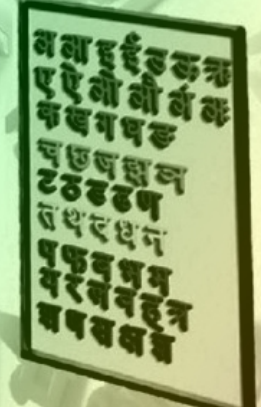 अ आ इ ई उ ऊ ऋ
ए ऐ ओ औ अं अः
क ख ग घ ङ
च छ ज झ ञ
ट ठ ड ढ ण
त थ द ध न
प फ ब भ म
य र ल व ह त्र
श ष स क्ष ज्ञ